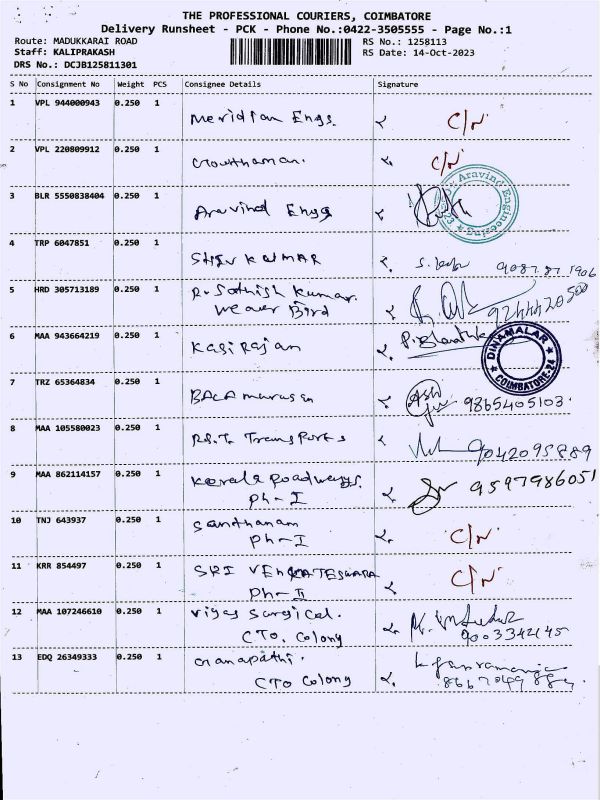 THE PROFESSIONAL COURIERS, COIMBATORE
Delivery Runsheet - PCK - Phone No.:0422-3505555 - Page No.:1
Route: MADUKKARAI ROAD
RS No.: 1258113
Staff: KALIPRAKASH
RS Date: 14-Oct-2023
DRS No.: DCJB125811301
S No Consignment No Weight PCS Consignee Details Signature
1 VPL 944000943 0.250 1 Meridian Engs. C/N
2 VPL 220809912 0.250 1 Gowthaman. C/N
3 BLR 5550838404 0.250 1 Aravind Engg
Aravind Engineering
4 TRP 6047851 0.250 1 9087871906
5 HRD 305713189 0.250 1 R. Sathish Kumar.
Weaver Bird 9244420500
6 MAA 943664219 0.250 1 Kasirajan
DINAMALAR
COIMBATORE-24
7 TRZ 65364834 0.250 1 BALA 9865405103
8 MAA 105580023 0.250 1 Transports 9042095889
9 MAA 862114157 0.250 1 Kerala Roadways.
Ph-I 9597986051
10 TNJ 643937 0.250 1 Santhanam
Ph-I C/N
11 KRR 854497 0.250 1 SRI VENKATESWARA
Ph-II C/N
12 MAA 107246610 0.250 1 Vijay Surgical.
CTO. Colony 9003342145
13 EDQ 26349333 0.250 1 Ganapathi.
CTO Colony